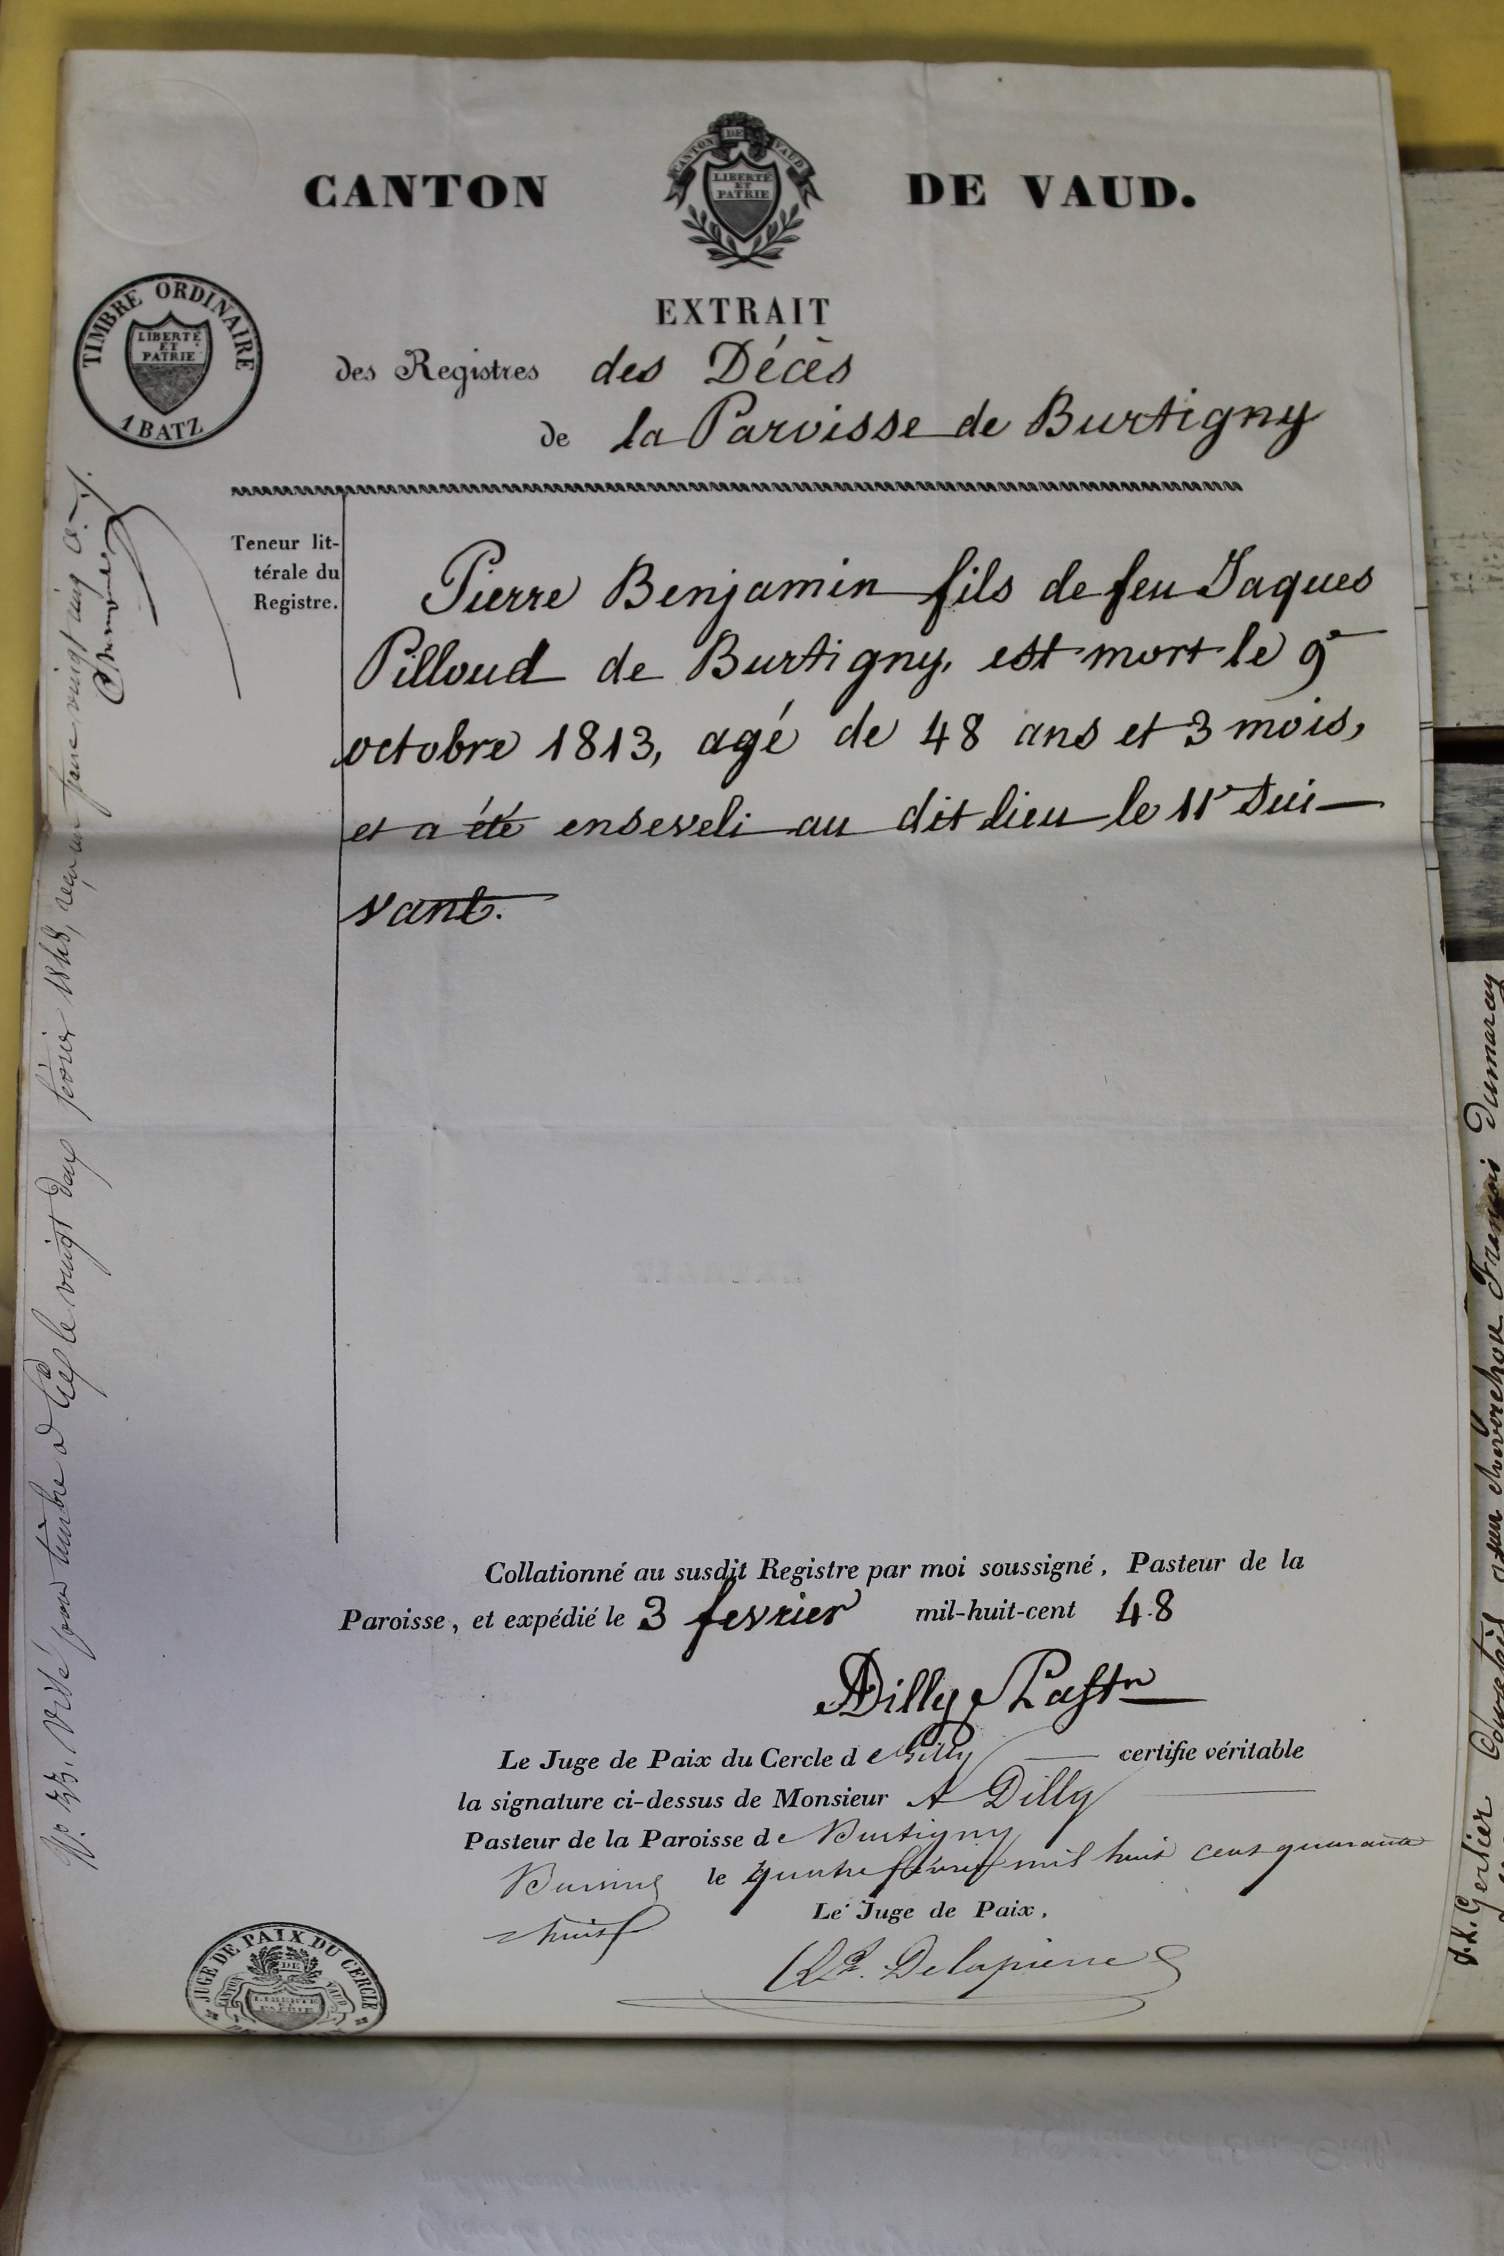 CANTON DE VAUD.
CANTON DE VAUD
LIBERTÉ
ET
PATRIE
TIMBRE ORDINAIRE
LIBERTÉ
ET
PATRIE
1 BATZ
EXTRAIT
des Registres des Décès
de la Paroisse de Burtigny
Teneur lit-
térale du
Registre.
Pierre Benjamin fils de feu Jaques
Pilloud de Burtigny, est mort le 9e
octobre 1813, agé de 48 ans et 3 mois,
et a été enseveli au dit lieu le 11e sui-
vant.
Collationné au susdit Registre par moi soussigné, Pasteur de la
Paroisse, et expédié le 3 fevrier mil-huit-cent 48
ADilly Pastr
Le Juge de Paix du Cercle de Gilly certifie véritable
la signature ci-dessus de Monsieur A Dilly
Pasteur de la Paroisse de Burtigny
le quatre février mil huit cent quarante
huit
Le Juge de Paix,
Delapierre
JUGE DE PAIX DU CERCLE
CANTON DE VAUD
LIBERTÉ
ET
PATRIE
No 33. Visé pour timbre à le vingt deux février 1848, reçu un franc vingt cinq c.
François Dumaray